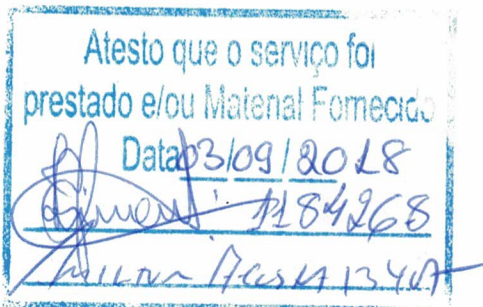 Atesto que o serviço foi
prestado e/ou Material Fornecido
Data 03/09/2018
1184268